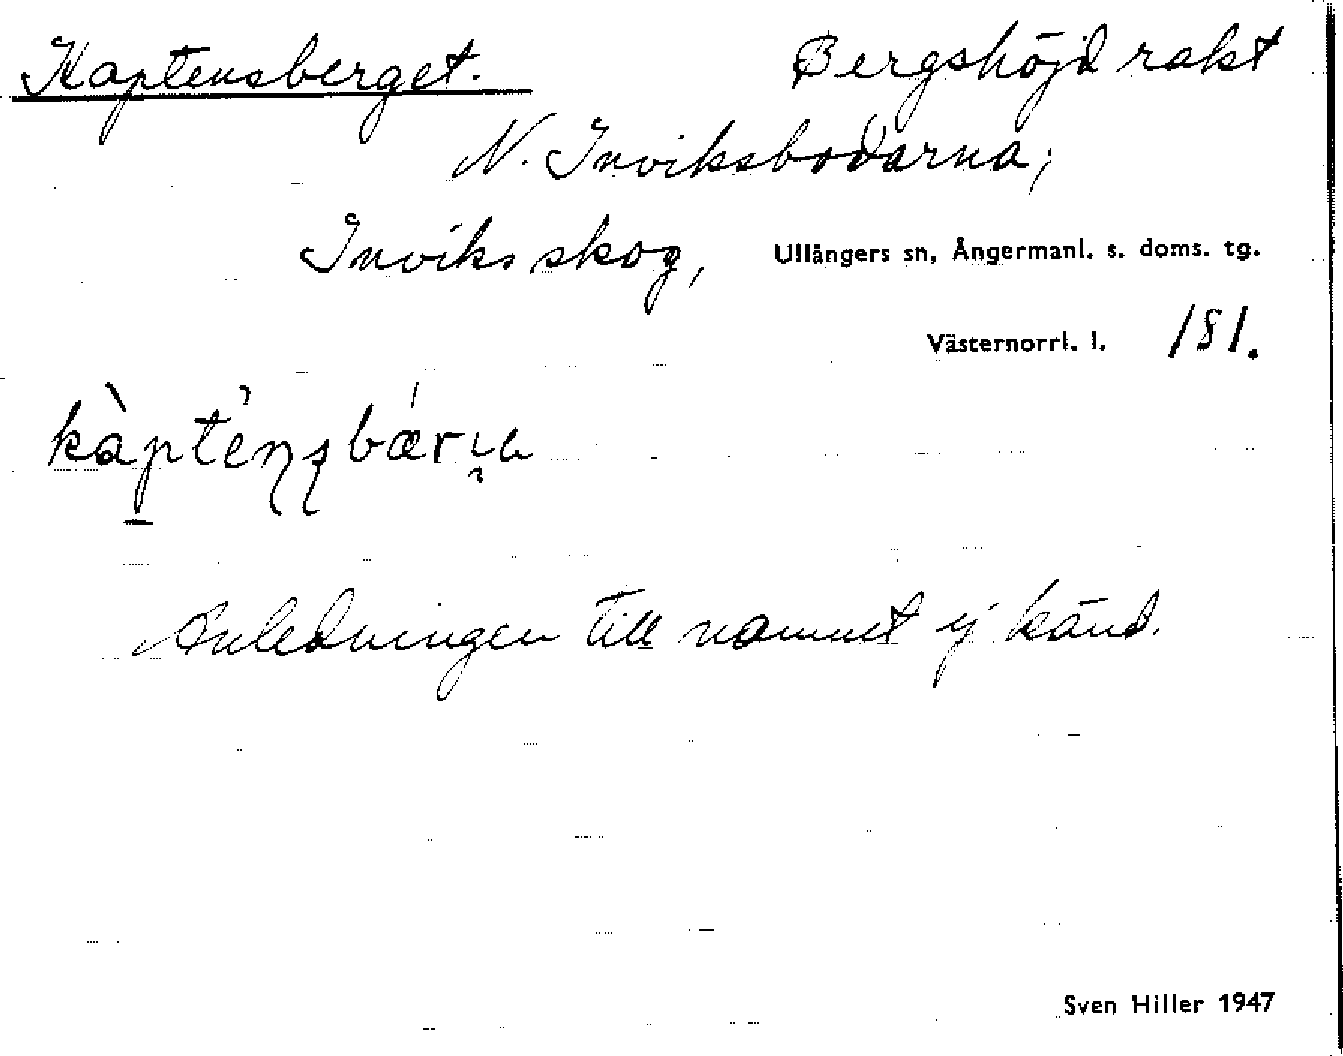 Kaptensberget. Bergshöjd rakt
N. Inviksbodarna;
Inviks skog, Ullångers sn, Ångermanl. s. doms. tg.
Västernorrl. l. 181.
Anledningen till namnet ej känd.
Sven Hiller 1947